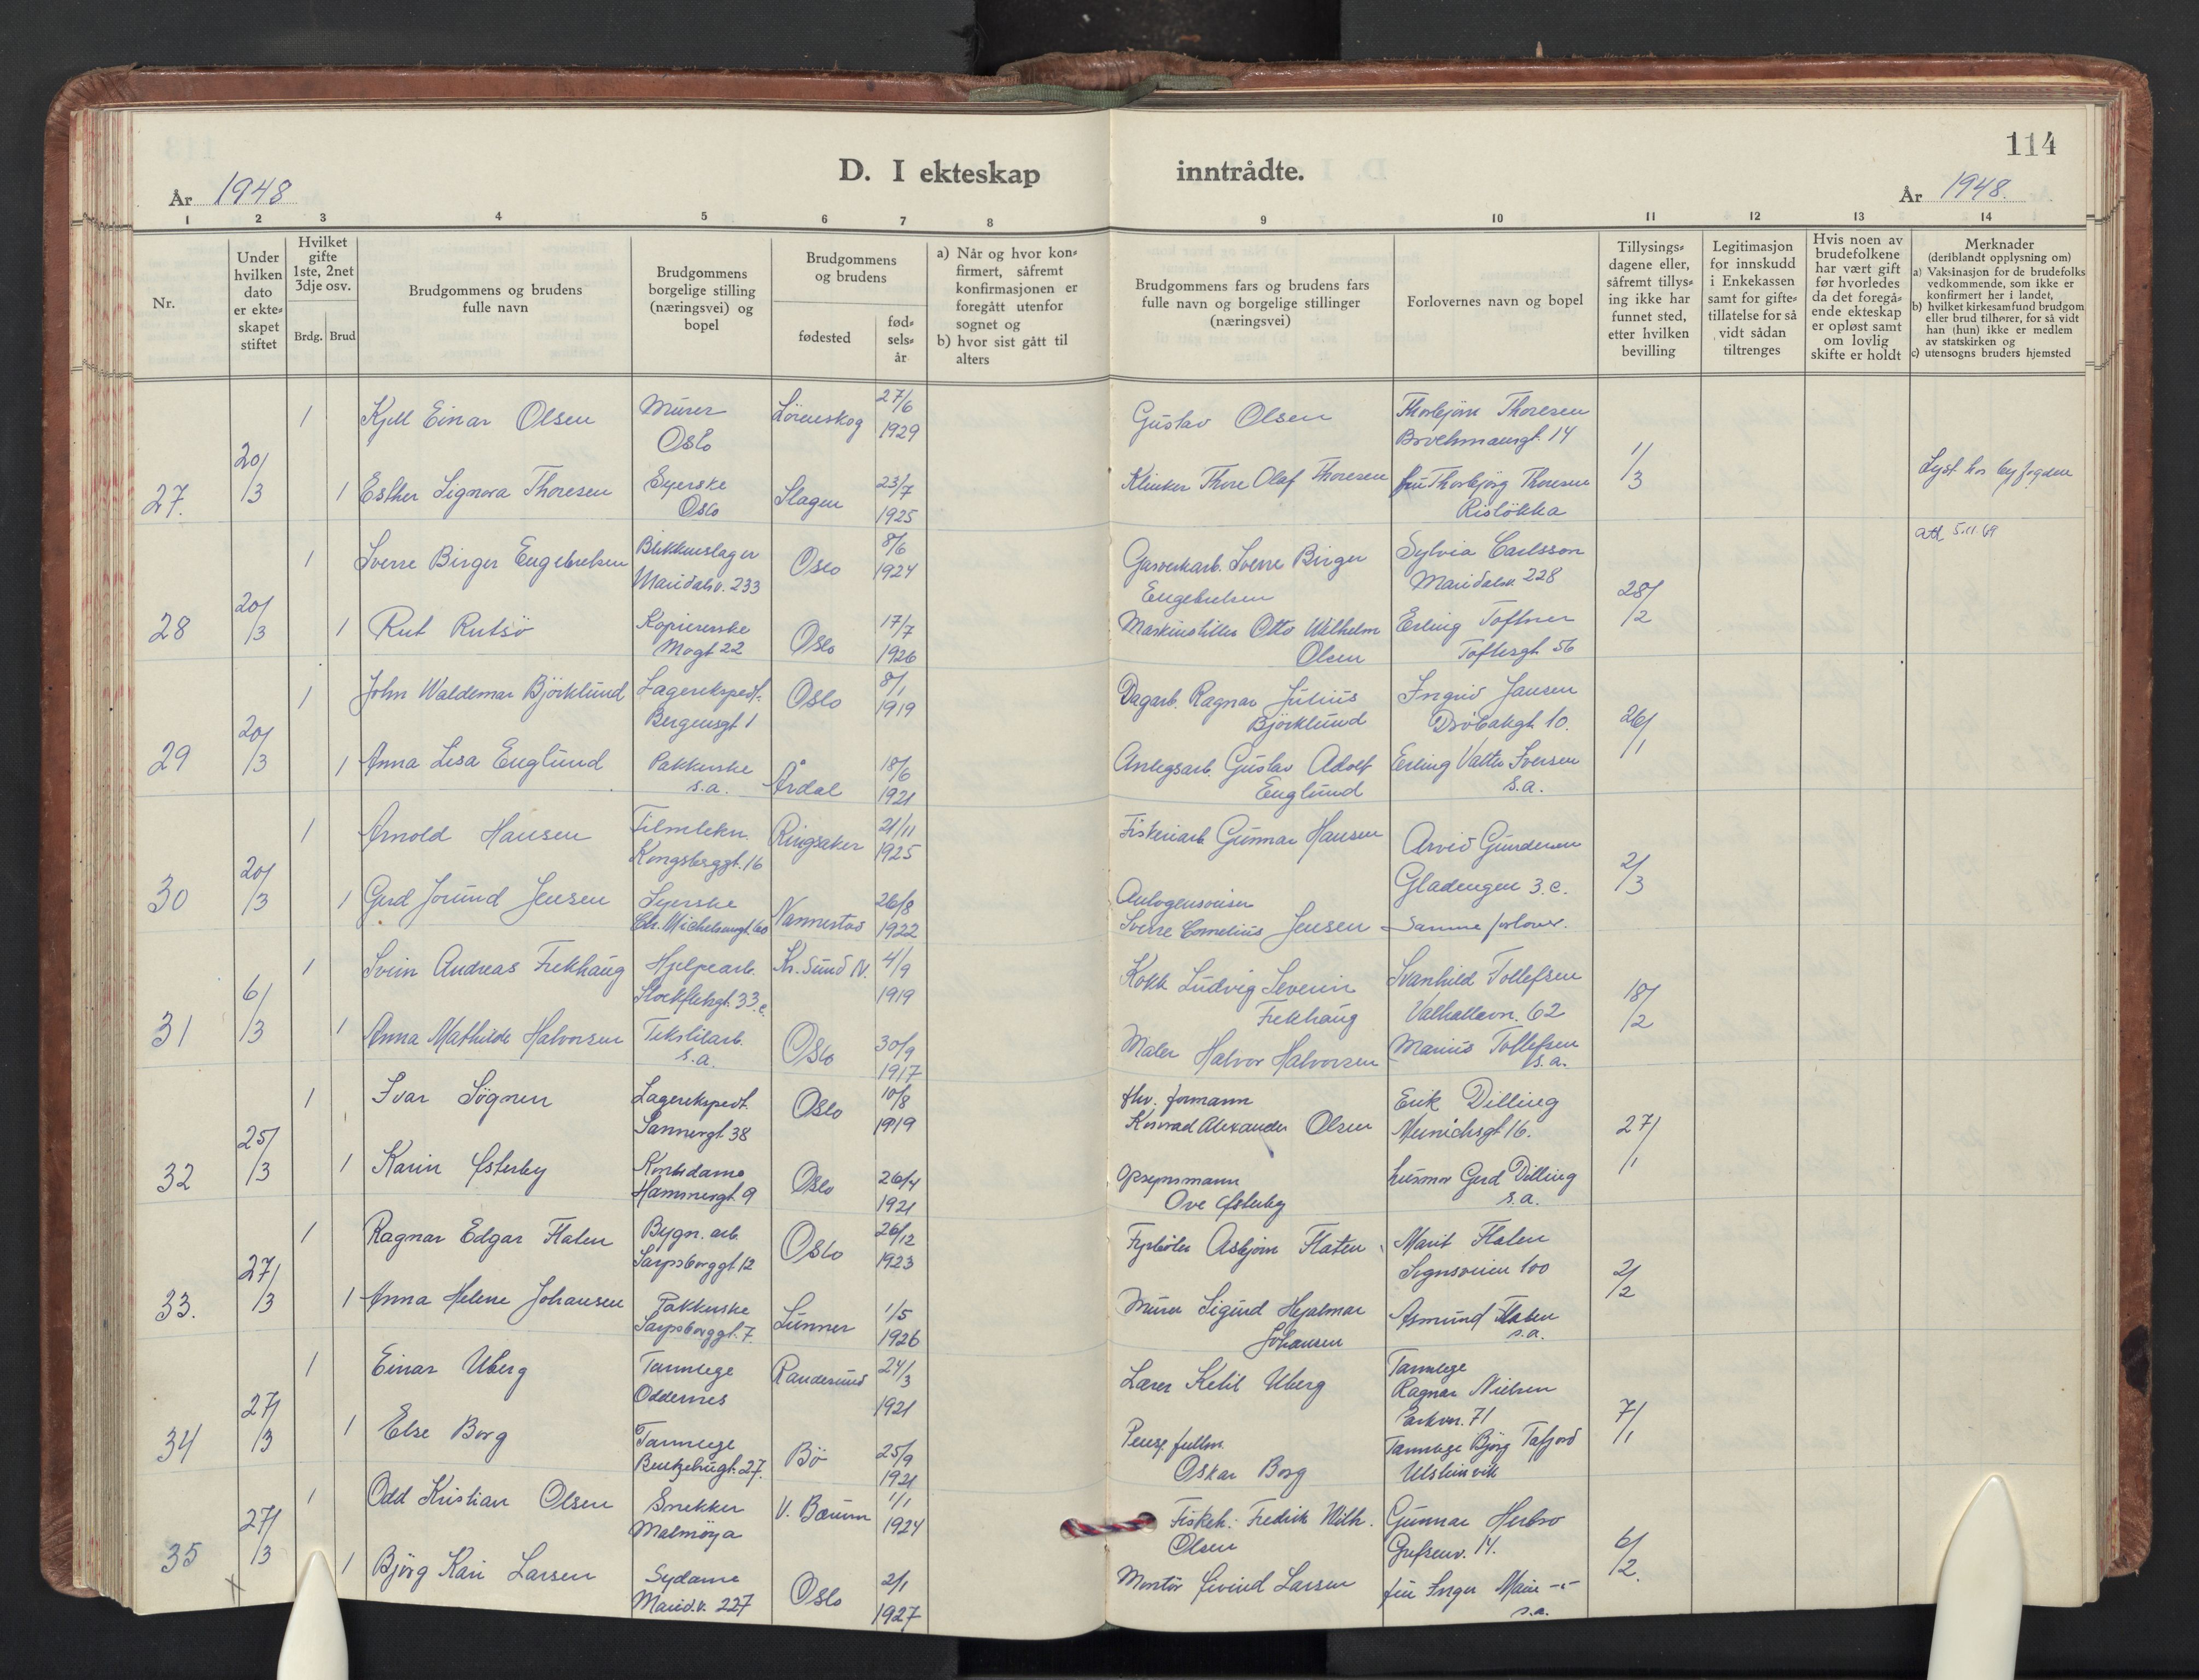 114
D. I ekteskap inntrådte.
År 1948
År 1948.
1 2 3 4 5 6 7 8 9 10 11 12 13 14
Nr.
Under
hvilken
dato
er ekte-
skapet
stiftet
Hvilket
gifte
1ste, 2net
3dje osv.
Brdg. Brud
Brudgommens og brudens
fulle navn
Brudgommens
borgelige stilling
(næringsvei) og
bopel
Brudgommens
og brudens
fødested
fød-
sels-
år
a) Når og hvor kon-
firmert, såfremt
konfirmasjonen er
foregått utenfor
sognet og
b) hvor sist gått til
alters
Brudgommens fars og brudens fars
fulle navn og borgelige stillinger
(næringsvei)
Forlovernes navn og bopel
Tillysings-
dagene eller,
såfremt tillys-
ing ikke har
funnet sted,
etter hvilken
bevilling
Legitimasjon
for innskudd
i Enkekassen
samt for gifte-
tillatelse for så
vidt sådan
tiltrenges
Hvis noen av
brudefolkene
har vært gift
før hvorledes
da det foregå-
ende ekteskap
er opløst samt
om lovlig
skifte er holdt
Merknader
(deriblandt opplysning om)
a) Vaksinasjon for de brudefolks
vedkommende, som ikke er
konfirmert her i landet,
b) hvilket kirkesamfund brudgom
eller brud tilhører, for så vidt
han (hun) ikke er medlem
av statskirken og
c) utensogns bruders hjemsted
27. 20/3
1 Kjell Einar Olsen
Murer
Oslo
Lörenskog
27/6
1929
Gustav Olsen
Thorbjörn Thoresen
14
1/3
1 Esther Signora Thoresen
Syerske
Oslo
Slagen
23/7
1925
Klinker Thore Olaf Thoresen
fru Thorbjörg Thoresen
Risløkka
Lyst hos byfogden
28 20/3
1 Sverre Birger Engebretsen
Blikkenslager
Maridalsv. 233
Oslo
8/6
1924
Gasverkarb. Sverre Birger
Engebretsen
Sylvia Carlsson
Maridalsv. 228
28/2
5.11.69
1 Rut Rutsö
Kopiererske
Mogt 22
Oslo
17/7
1926
Maskinstiller Otto Wilhelm
Olsen
Erling Toftner
Toftesgt 56
29 20/3
1 John Waldemar Björklund
Lagerekspedt.
Bergensgt 1
Oslo
8/1
1919
Dagarb. Ragnar Julius
Björklund
Ingrid Jansen
Dröbakgt 10.
26/1
1 Anna Lisa Englund
Pakkerske
s.a.
Årdal
18/6
1921
Anlegsarb. Gustav Adolf
Englund
Erling Valter Iversen
s.a.
30 20/3
1 Arnold Hansen
Filmtekn.
Kongsberggt. 16
Ringsaker
21/11
1925
Fiskeriarb Gunnar Hansen
Arvid Gundersen
Gladengen 3.c.
2/3
1 Gerd Jorund Jensen
Syerske
Chr. Michelsensgt. 60
Nannestad
26/8
1922
Autogensveiser
Sverre Cornelius Jensen
Samme forlover.
31 6/3
1 Svein Andreas Frekhaug
Hjelpearb.
Stockfletsgt. 33.c.
Kr.sund N.
4/9
1919
Kokk Ludvig Severin
Frekhaug
Svanhild Tollefsen
Valhallavn. 62
18/2
1 Anna Mathilde Halvorsen
Tekstilarb.
s.a.
Oslo
30/9
1917
Maler Halvor Halvorsen
Marius Tollefsen
s.a.
32 25/3
1 Ivar Sögnen
Lagerekspedt.
Sannergt 38
Oslo
10/8
1919
fhv. formann
Konrad Alexander Olsen
Erik Dilling
Meinichsgt 16.
27/1
1 Karin Østerby
Kontordame
Hammergt. 9
Oslo
26/4
1921
Opsynsmann
Ove Østerby
husmor Gerd Dilling
s.a.
33. 27/3
1 Ragnar Edgar Flaten
Bygn. arb.
Sarpsborggt 12
Oslo
26/12
1923
Fyrbøter Asbjørn Flaten
Marit Flaten
Sognsveien 100
2/2
1 Anna Helene Johansen
Pakkerske
Sarpsborggt. 7
Lunner
1/5
1926
Murer Sigurd Hjalmar
Johansen
Asmund Flaten
s.a.
34 27/3
1 Einar Uberg
Tannlege
Oddernes
Randesund
24/3
1921
Lærer Ketil Uberg
Tannlege
Ragnar Nielsen
Parkvn. 71
7/1
1 Else Borg
Tannlege
27.
Bö
25/9
1921
fullm.
Oskar Borg
Tannlege Björg Tafjord
Ulsteinvik
35 27/3
1 Odd Kristian Olsen
Snekker
Malmöya
V. Bærum
1/1
1924
Fiskeh. Fredrik Wilh.
Olsen
Gunnar Herbro
Grefsenv. 14.
6/2.
1 Björg Kari Larsen
Sydame
Marid.v. 227
Oslo
2/1
1927
Montör Øivind Larsen
fru Inger Marie -"-
s.a.